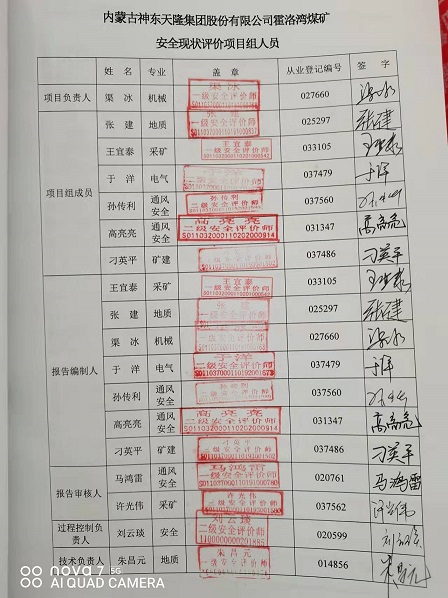 内蒙古神东天隆集团股份有限公司霍洛湾煤矿
安全现状评价项目组人员
姓 名 专业 盖 章 从业登记编号 签 字
项目负责人 渠 冰 机械 渠 冰 一级安全评价师 027660 渠冰
项目组成员
张 建 地质 张 建 一级安全评价师 025297 张建
王宜泰 采矿 王宜泰 一级安全评价师 033105 王宜泰
于 洋 电气 037479 于洋
孙传利 通风安全 孙传利 二级安全评价师 037560
高亮亮 通风安全 高亮亮 二级安全评价师 S011032000110202000914 031347 高亮亮
刁英平 矿建 037486 刁英平
报告编制人
王宜泰 采矿 王宜泰 一级安全评价师 033105 王宜泰
张 建 地质 025297 张建
渠 冰 机械 027660 渠冰
于 洋 电气 于洋 二级安全评价师 037479 于洋
孙传利 通风安全 037560
高亮亮 通风安全 高亮亮 二级安全评价师 S011032000110202000914 031347 高亮亮
刁英平 矿建 刁英平 037486 刁英平
报告审核人
马鸿雷 通风安全 马鸿雷 一级安全评价师 020761 马鸿雷
许光伟 采矿 许光伟 一级安全评价师 037562 许光伟
过程控制负责人 刘云琰 安全 刘云琰 二级安全评价师 020599
技术负责人 朱昌元 地质 朱昌元 014856
nova 7 5G
AI QUAD CAMERA